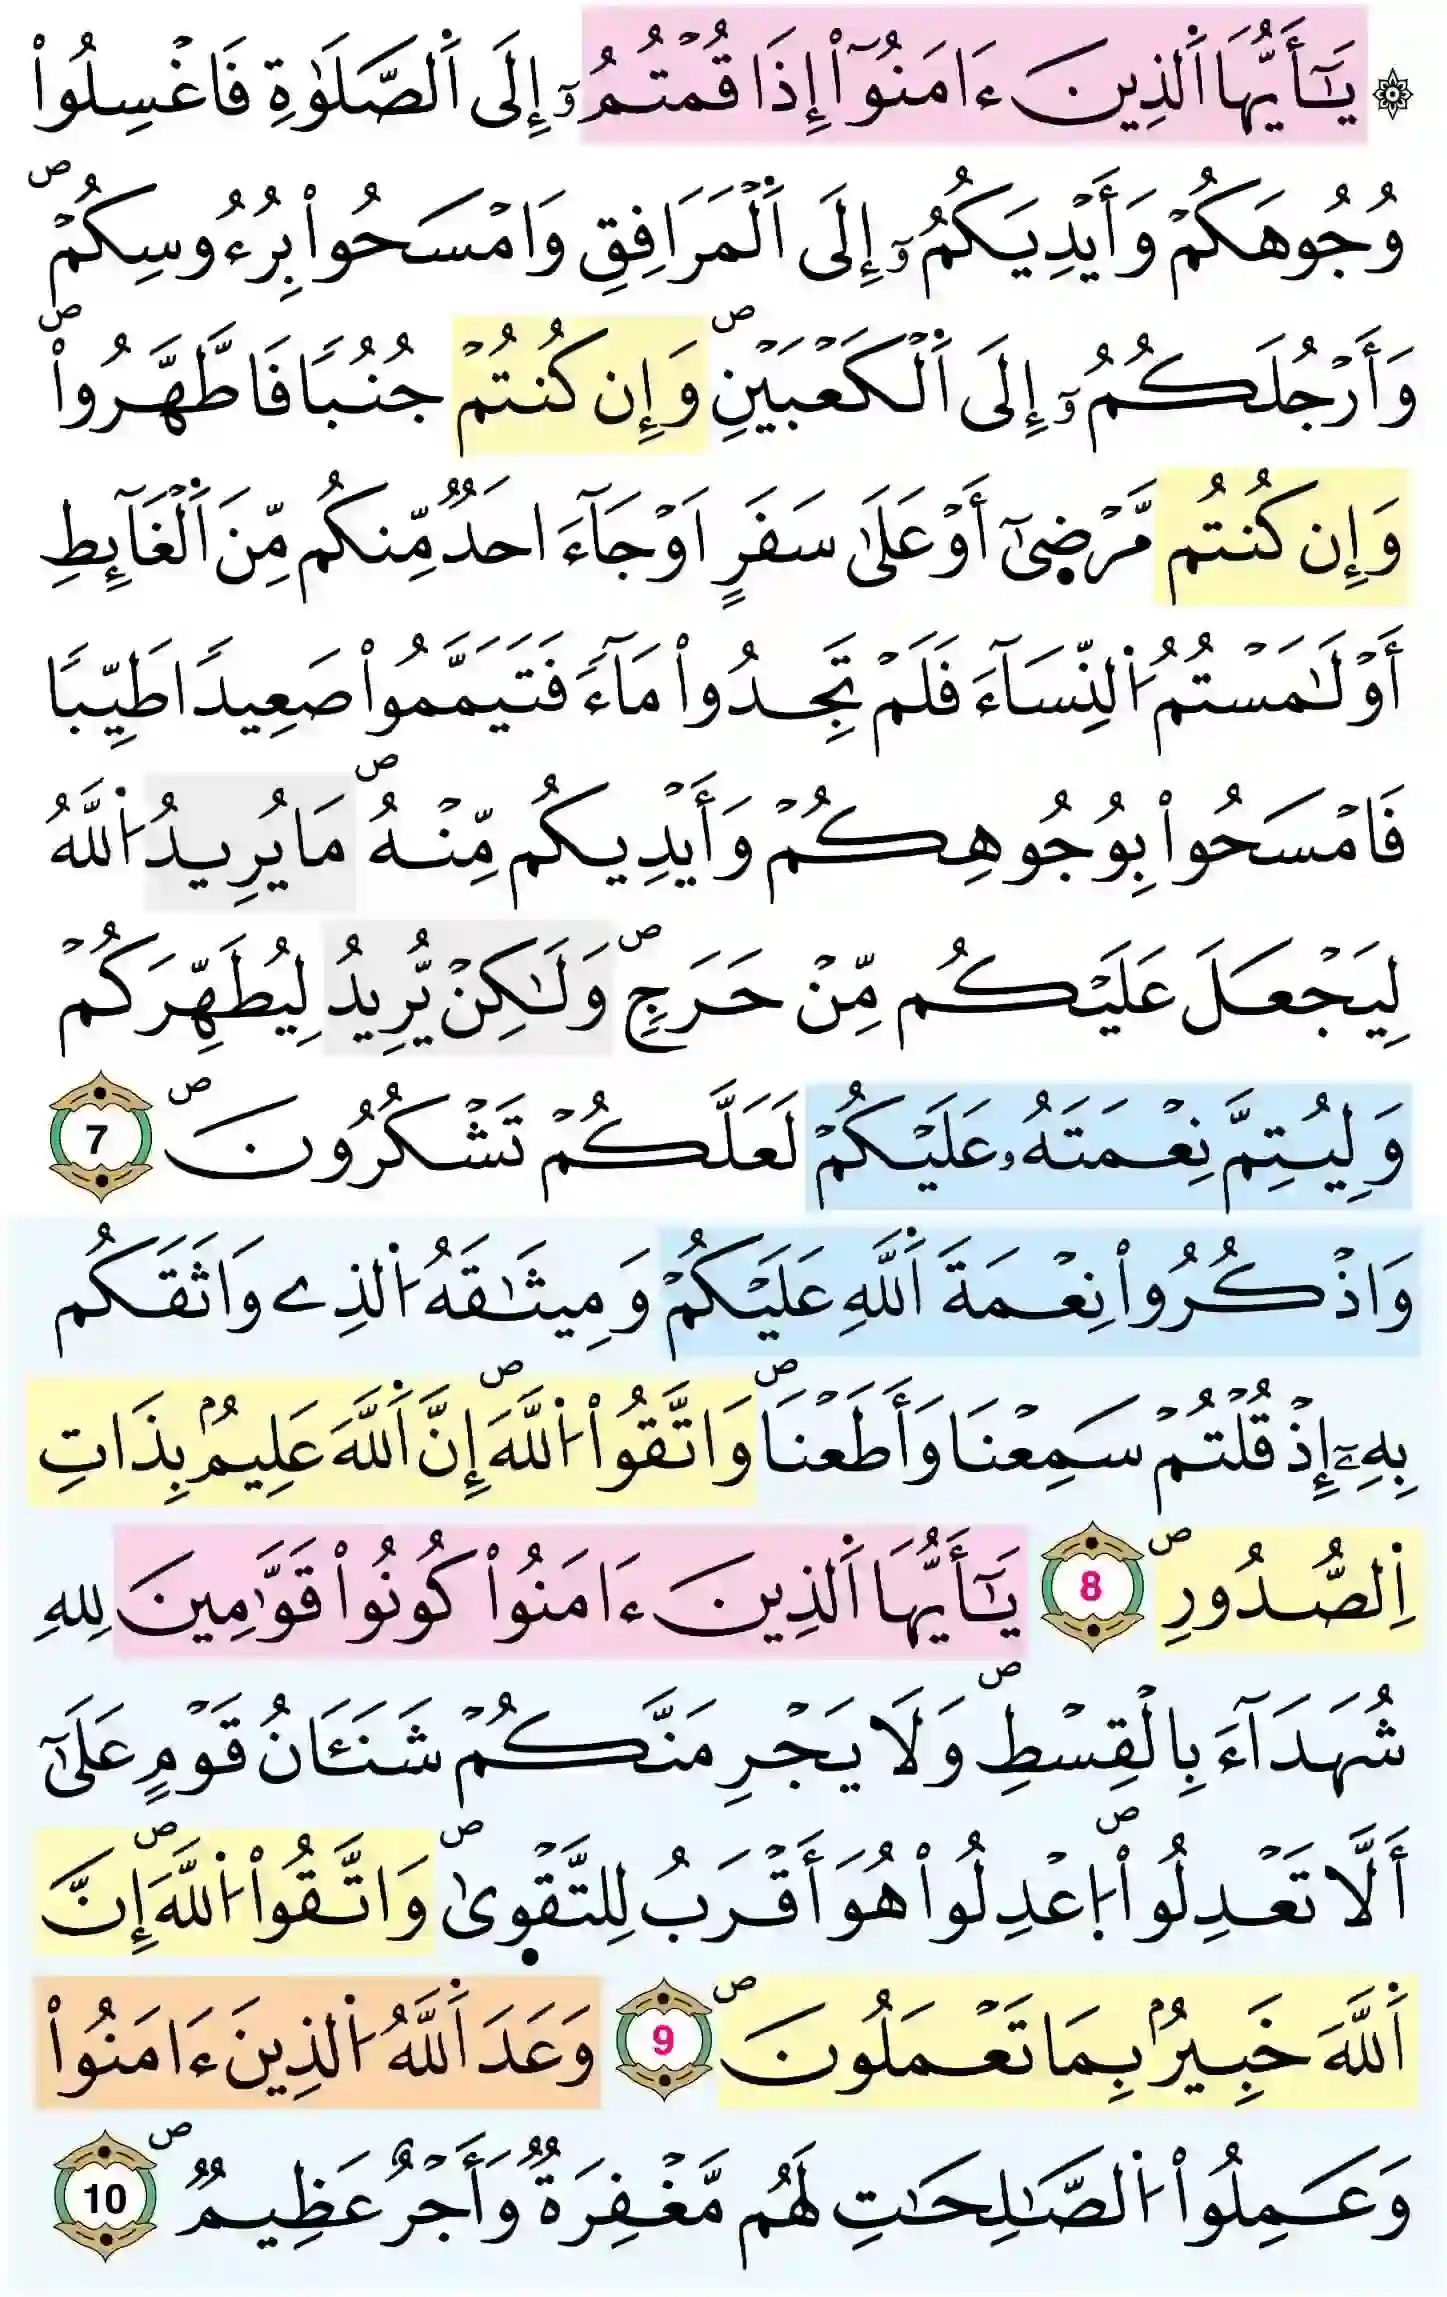 ۞ يَٰٓأَيُّهَا اَ۬لذِينَ ءَامَنُوٓاْ إِذَا قُمْتُمُۥٓ إِلَى اَ۬لصَّلَوٰةِ فَاغْسِلُواْ
وُجُوهَكُمْ وَأَيْدِيَكُمُۥٓ إِلَى اَ۬لْمَرَافِقِ وَامْسَحُواْ بِرُءُوسِكُمْۖ
وَأَرْجُلَكُمُۥٓ إِلَى اَ۬لْكَعْبَيْنِۖ وَإِن كُنتُمْ جُنُباً فَاطَّهَّرُواْۖ
وَإِن كُنتُم مَّرْض۪ىٰٓ أَوْ عَلَىٰ سَفَرٍ اَوْ جَآءَ احَدٌ مِّنكُم مِّنَ اَ۬لْغَآئِطِ
أَوْ لَٰمَسْتُمُ اُ۬لنِّسَآءَ فَلَمْ تَجِدُواْ مَآءً فَتَيَمَّمُواْ صَعِيداً طَيِّباً
فَامْسَحُواْ بِوُجُوهِكُمْ وَأَيْدِيكُم مِّنْهُۖ مَا يُرِيدُ اُ۬للَّهُ
لِيَجْعَلَ عَلَيْكُم مِّنْ حَرَجٍۖ وَلَٰكِنْ يُّرِيدُ لِيُطَهِّرَكُمْ
وَلِيُتِمَّ نِعْمَتَهُۥ عَلَيْكُمْ لَعَلَّكُمْ تَشْكُرُونَۖ 7
وَاذْكُرُواْ نِعْمَةَ اَ۬للَّهِ عَلَيْكُمْ وَمِيثَٰقَهُ اُ۬لذِے وَاثَقَكُم
بِهِۦٓ إِذْ قُلْتُمْ سَمِعْنَا وَأَطَعْنَاۖ وَاتَّقُواْ اُ۬للَّهَۖ إِنَّ اَ۬للَّهَ عَلِيمُۢ بِذَاتِ
اِ۬لصُّدُورِۖ 8 يَٰٓأَيُّهَا اَ۬لذِينَ ءَامَنُواْ كُونُواْ قَوَّٰمِينَ لِلهِ
شُهَدَآءَ بِالْقِسْطِۖ وَلَا يَجْرِمَنَّكُمْ شَنَـَٔانُ قَوْمٍ عَلَىٰٓ
أَلَّا تَعْدِلُواْۖ اُ۪عْدِلُواْ هُوَ أَقْرَبُ لِلتَّقْو۪ىٰۖ وَاتَّقُواْ اُ۬للَّهَۖ إِنَّ
اَ۬للَّهَ خَبِيرُۢ بِمَا تَعْمَلُونَۖ 9 وَعَدَ اَ۬للَّهُ اُ۬لذِينَ ءَامَنُواْ
وَعَمِلُواْ اُ۬لصَّٰلِحَٰتِ لَهُم مَّغْفِرَةٌ وَأَجْرٌ عَظِيمٌۖ 10